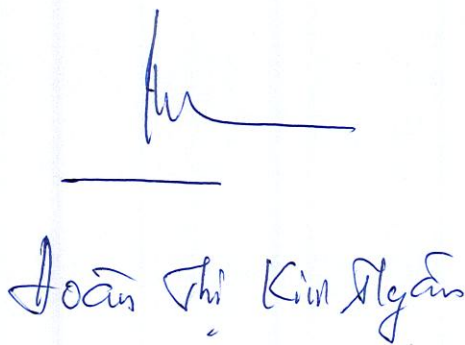 Đoàn Thị Kim Ngân